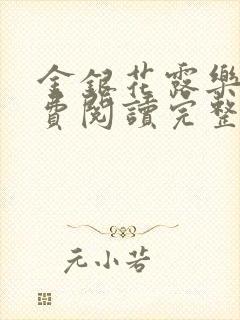 金銀花露樂
費閱讀完整
元小若